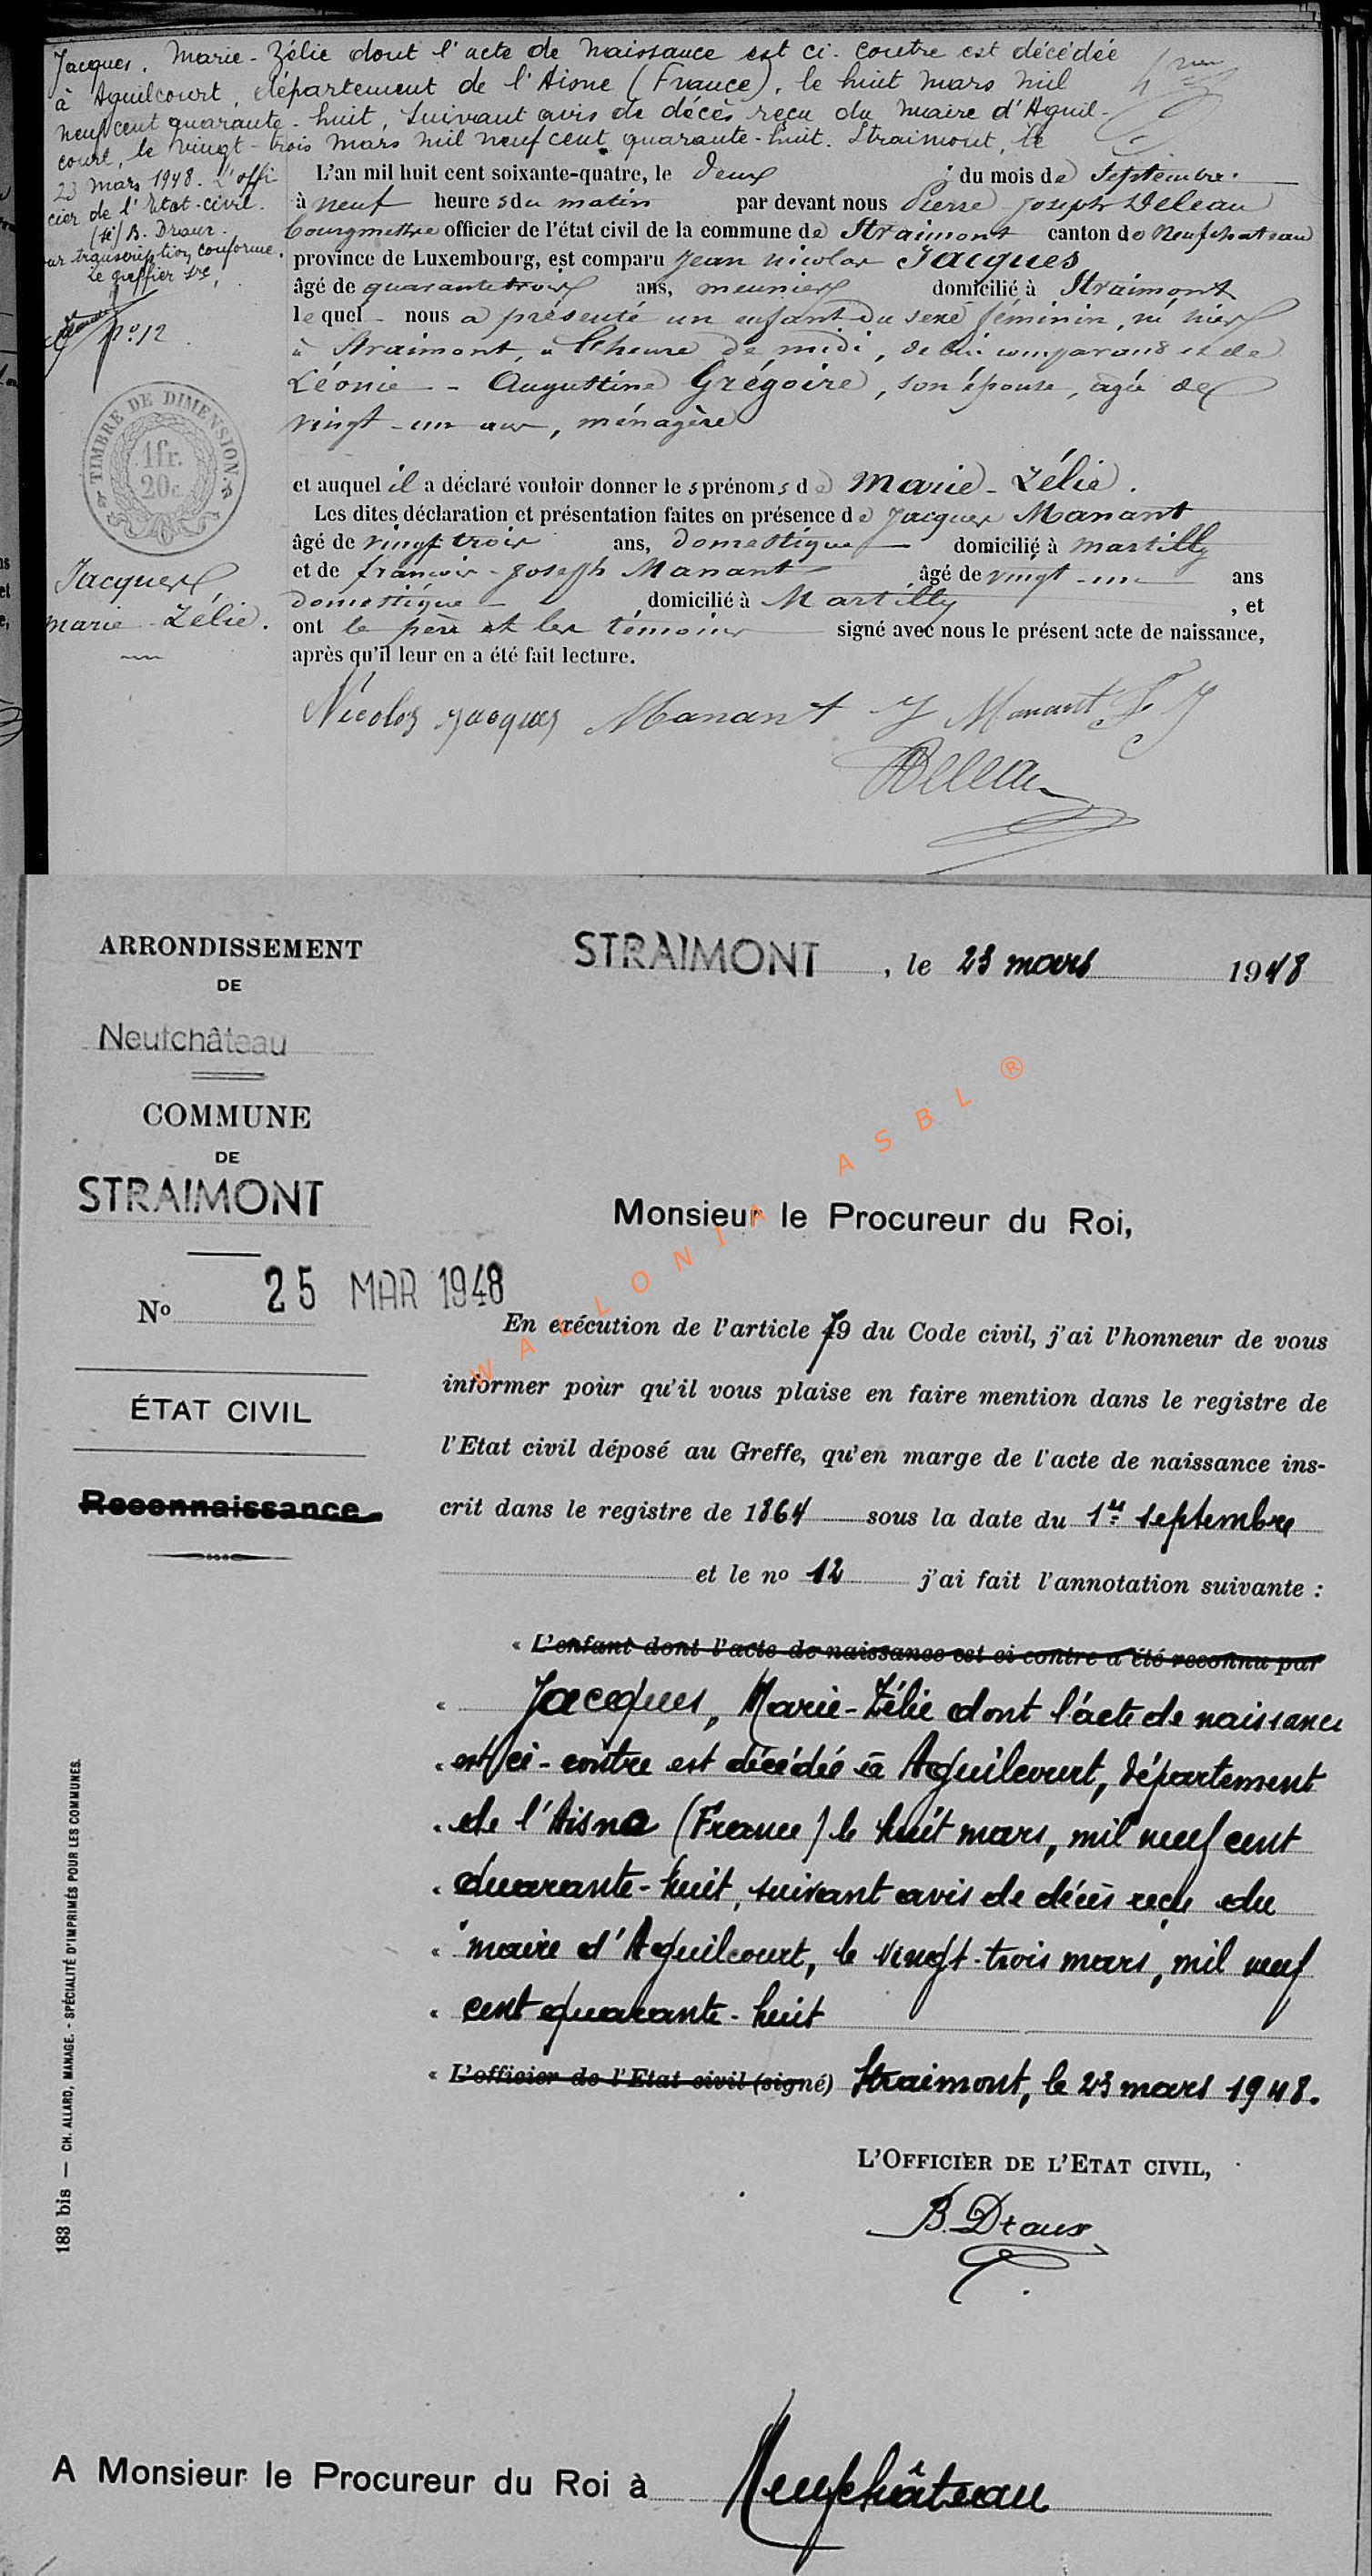 Jacques, Marie-Zélie dont l'acte de naissance est ci-contre est décédée
à Aguilcourt, département de l'Aisne (France), le huit mars mil
neuf cent quarante-huit, suivant avis de décès reçu du maire d'Aguil-
court, le vingt-trois mars mil neuf cent quarante-huit. Straimont, le
23 mars 1948. L'offi
cier de l'Etat-civil.
(sé) B. Draux.
transcription conforme.
Le greffier
No 12
TIMBRE DE DIMENSION
1fr.
20c
Jacques
marie-Zélie.
L'an mil huit cent soixante-quatre, le deux du mois de Septembre
à neuf heures du matin par devant nous Pierre Joseph Deleau
bourgmettre officier de l'état civil de la commune de Straimont canton de Neufchateau
province de Luxembourg, est comparu Jean nicolas Jacques
âgé de quarante trois ans, meunier domicilié à Straimont
lequel nous a présenté un enfant du sexe féminin, né hier
à Straimont, à l'heure de midi, de lui comparant et de
Léonie-Augustine Grégoire, son épouse, agée de
vingt-un ans, ménagère
et auquel il a déclaré vouloir donner les prénoms de Marie-Zélie.
Les dites déclaration et présentation faites en présence de Jacques Manant
âgé de vingt trois ans, domestique domicilié à martilly
et de françois-Joseph Manant âgé de vingt-un ans
domestique domicilié à Martilly, et
ont le père et les témoins signé avec nous le présent acte de naissance,
après qu'il leur en a été fait lecture.
Nicolas Jacques Manant J Manant F J
Deleau
ARRONDISSEMENT
DE
Neufchâteau
COMMUNE
DE
STRAIMONT
No 25 MAR 1948
ÉTAT CIVIL
Reconnaissance
STRAIMONT, le 23 mars 1948
Monsieur le Procureur du Roi,
En exécution de l'article 79 du Code civil, j'ai l'honneur de vous
informer pour qu'il vous plaise en faire mention dans le registre de
l'Etat civil déposé au Greffe, qu'en marge de l'acte de naissance ins-
crit dans le registre de 1864 sous la date du 1er septembre
et le no 12 j'ai fait l'annotation suivante :
« L'enfant dont l'acte de naissance est ci contre a été reconnu par
« Jacques, Marie-Zélie dont l'acte de naissance
« est ci-contre est décédée à Aguilcourt, département
« de l'Aisne (France) le huit mars, mil neuf cent
« quarante-huit, suivant avis de décès reçu du
« maire d'Aguilcourt, le vingt-trois mars, mil neuf
« cent quarante-huit
« L'officier de l'Etat civil (signé) Straimont, le 23 mars 1948.
L'OFFICIER DE L'ETAT CIVIL,
B. Draux
A Monsieur le Procureur du Roi à Neufchâteau
183 bis — CH. ALLARD, MANAGE. - SPÉCIALITÉ D'IMPRIMÉS POUR LES COMMUNES.
WALLONIA ASBL ®